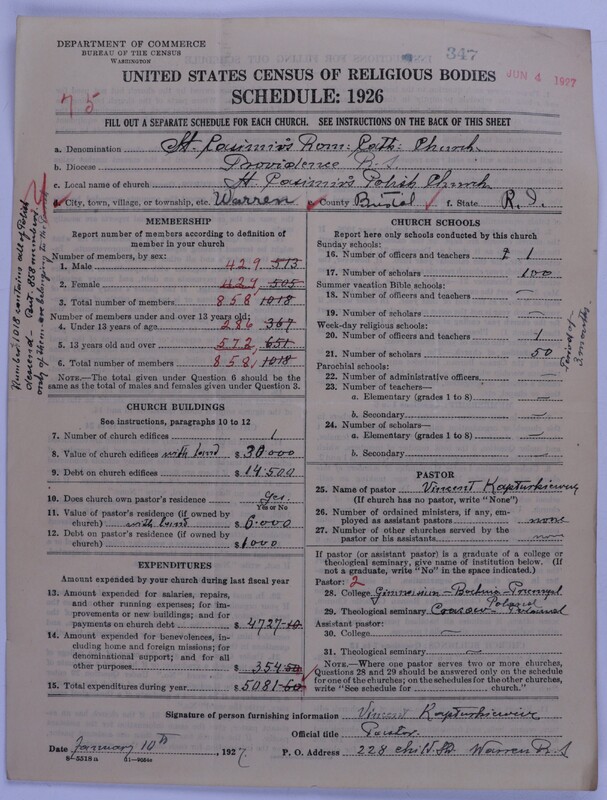 DEPARTMENT OF COMMERCE
BUREAU OF THE CENSUS
WASHINGTON
347
JUN 4 1927
UNITED STATES CENSUS OF RELIGIOUS BODIES
75
SCHEDULE: 1926
FILL OUT A SEPARATE SCHEDULE FOR EACH CHURCH. SEE INSTRUCTIONS ON THE BACK OF THIS SHEET
a. Denomination St. Casimir's Rom. Cath. Church
b. Diocese Providence R.I.
c. Local name of church St. Casimir's Polish Church
City, town, village, or township, etc. Warren County Bristol f. State R.I.
Number 1018 contains all of Polish
descend - But 858 members
only of them are belonging to the
MEMBERSHIP
Report number of members according to definition of
member in your church
Number of members, by sex:
1. Male 429 513
2. Female 429 505
3. Total number of members 858 1018
Number of members under and over 13 years old:
4. Under 13 years of age 286 367
5. 13 years old and over 572 651
6. Total number of members 858 1018
NOTE.—The total given under Question 6 should be the
same as the total of males and females given under Question 3.
CHURCH BUILDINGS
See instructions, paragraphs 10 to 12
7. Number of church edifices 1
8. Value of church edifices with land $ 30000
9. Debt on church edifices $ 14500
10. Does church own pastor's residence Yes.
Yes or No
11. Value of pastor's residence (if owned by
church) with land $ 6000
12. Debt on pastor's residence (if owned by
church) $ 1000
EXPENDITURES
Amount expended by your church during last fiscal year
13. Amount expended for salaries, repairs,
and other running expenses; for im-
provements or new buildings; and for
payments on church debt $ 4727 10
14. Amount expended for benevolences,
including home and foreign missions; for
denominational support; and for all
other purposes $ 354 50
15. Total expenditures during year $ 5081 60
CHURCH SCHOOLS
Report here only schools conducted by this church
Sunday schools:
16. Number of officers and teachers 1
17. Number of scholars 100
Summer vacation Bible schools:
18. Number of officers and teachers —
19. Number of scholars —
Week-day religious schools:
20. Number of officers and teachers 1
21. Number of scholars 50
Parochial schools:
22. Number of administrative officers —
23. Number of teachers—
a. Elementary (grades 1 to 8) —
b. Secondary —
24. Number of scholars—
a. Elementary (grades 1 to 8) —
b. Secondary —
PASTOR
25. Name of pastor Vincent Kapturkiewicz
(If church has no pastor, write "None")
26. Number of ordained ministers, if any, em-
ployed as assistant pastors none
27. Number of other churches served by the
pastor or his assistants none
If pastor (or assistant pastor) is a graduate of a college or
theological seminary, give name of institution below. (If
not a graduate, write "No" in the space indicated.)
Pastor: 2
28. College Gimnasium - Bochnia - Przemysl
Poland
29. Theological seminary Cracow - Poland
Assistant pastor:
30. College —
31. Theological seminary —
NOTE.—Where one pastor serves two or more churches,
Questions 28 and 29 should be answered only on the schedule
for one of the churches; on the schedules for the other churches,
write "See schedule for church."
Signature of person furnishing information Vincent Kapturkiewicz
Official title Pastor
Date January 10th, 1927. P. O. Address 228 Child St. Warren R.I.
8-5518a